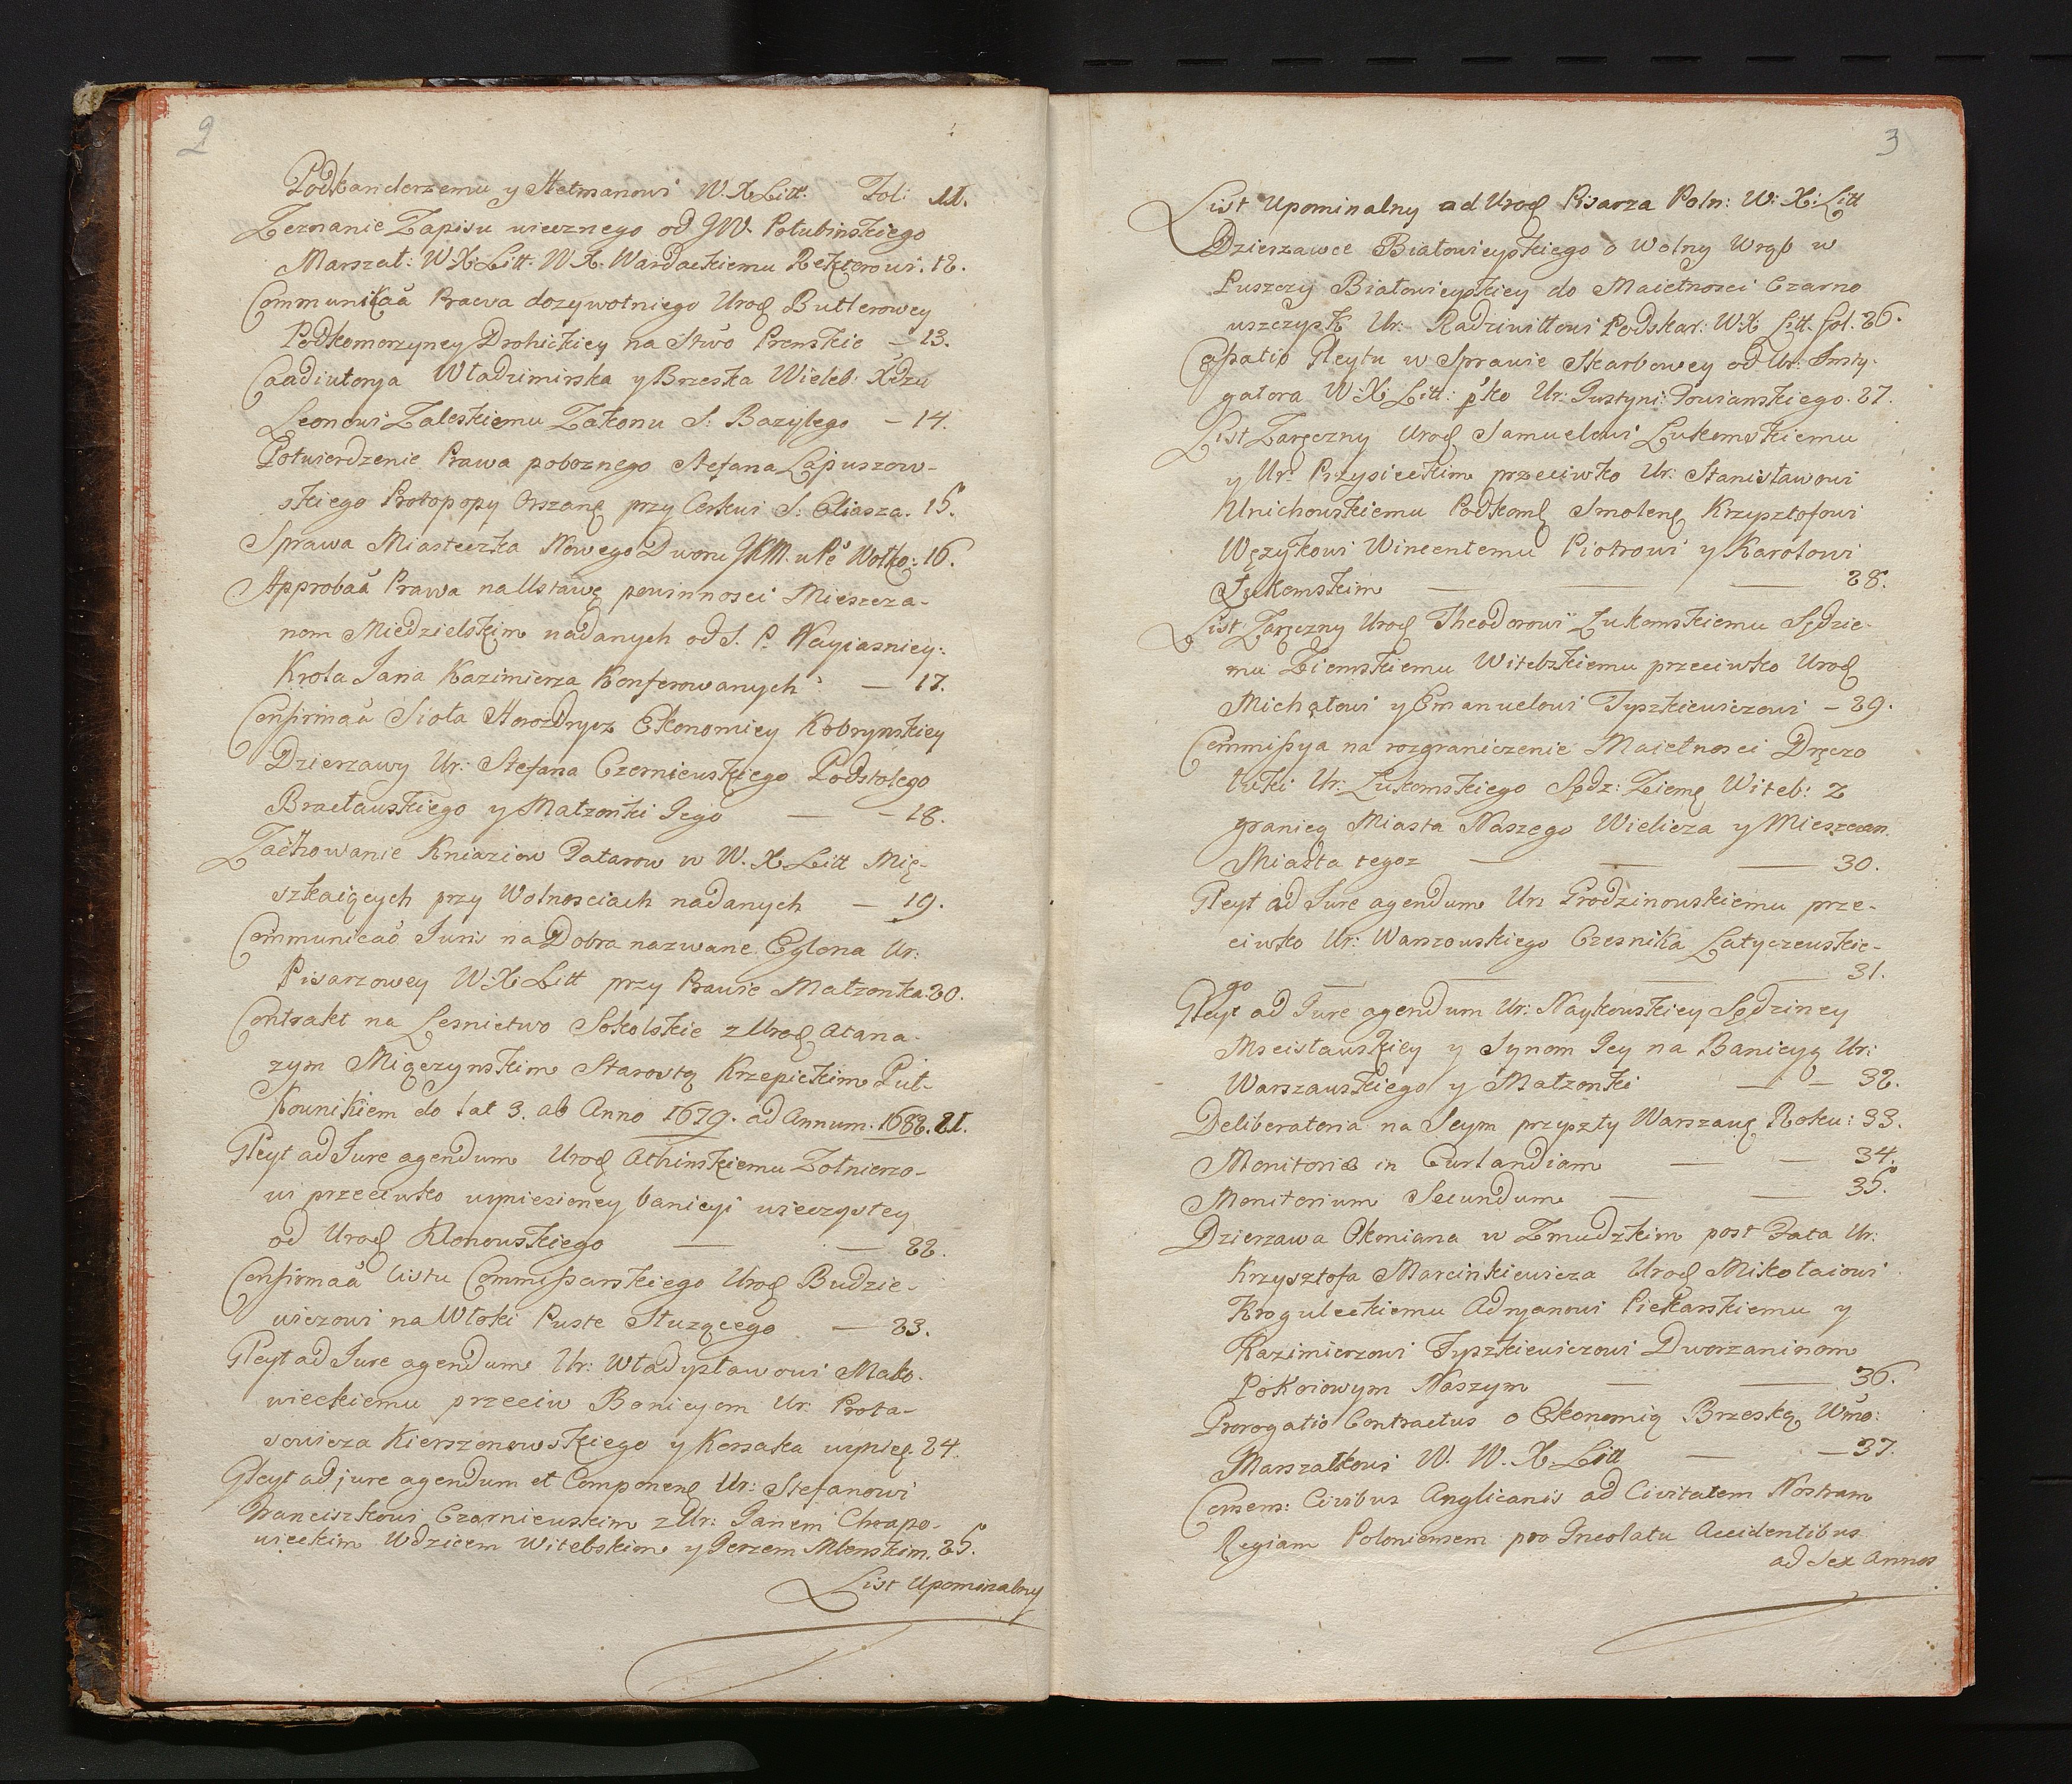 2
Podkanclerzemu y Hetmanowi W. X. Litt: Fol: 11.
Zeznanie Zapisu wiecznego od JW. Połubinskiego
Marszał: W. X. Litt. W. X. Wardackiemu Rektorowi. 12.
Communikaã Prawa dozywotniego Urod Butlerowey
Podkomorzyney Drohickiey na Stwo Prenskie – 13.
Coadiutorya Wladzimirska y Brzeska Wieleb: Xdzu
Leonowi Zaleskiemu Zakonu S: Bazylego – 14.
Potwierdzenie Prawa poboznego Stefana Łapuszow-
skiego Protopopy Orszans przy Cerkwi S: Eliasza. 15.
Sprawa Miasteczka Nowego Dworu JKM. w Pe Wołko: 16.
Approbaã Prawa na Ustawę powinnosci Mieszcza-
nom Miedzielskim nadanych od S. P. Nayiasniey:
Krola Jana Kazimierza Konferowanych – 17.
Confirmaã Sioła Horodrycz Ekonomiey Kobrynskiey
Dzierzawy Ur: Stefana Czerniewskiego Podstolego
Bracławskiego y Małzonki Jego – – 18.
Zachowanie Kniaziow Tatarow w W. X. Litt Mię-
szkaiących przy Wolnosciach nadanych – 19.
Communicaõ Juris na Dobra nazwane Eglona Ur:
Pisarzowey W. X. Litt przy Prawie Małzonka. 20.
Contrakt na Lesnictwo Sokolskie z Urod Atana-
zym Miączynskim Starostą Krzepickim Puł-
kownikiem do lat 3. ab Anno 1679. ad Annum. 1682. 21.
Gleyt ad Jure agendum Urod Athinskiemu Zołnierzo-
wi przeciwko wyniesioney banicyi wieczystey
od Urod Klonowskiego – – 22.
Confirmaã listu Commissarskiego Urod Budzie-
wiczowi na Włoki Puste Słuzącego – 23.
Gleyt ad Jure agendum Ur: Władysławowi Mako-
wieckiemu przeciw Banicyom Ur. Prota-
sowicza Kierszonowskiego y Korsaka wynies. 24.
Gleyt ad jure agendum et Componend Ur: Stefanowi
Franciszkowi Czarniewskim z Ur: Janem Chrapo-
wickim Wdzicem Witebskim y Jerzem Mlenskim. 25.
List Upominalny
3
List Upominalny ad Urod Pisarza Poln: W: X: Litt
Dzierzawce Białowieyskiego o Wolny Wrąb w
Puszczy Białowieyskiey do Maiętnosci Czarno
uszczysk Ur: Radziwiłłowi Podskar: W. X Litt. fol. 26.
Cassatio Gleytu w Sprawie Skarbowey od Ur: Insty-
gatora W. X. Litt: pko Ur: Justyni: Dowianskiego. 27.
List Zaręczny Urod Samuelowi Łukomskiemu
y Ur: Przysieckim przeciwko Ur: Stanisławowi
Unichowskiemu Podkom Smolens Krzysztofowi
Wężykowi Wincentemu Piotrowi y Karolowi
Łukomskim — — — 28.
List Zaręczny Urod Theodorowi Łukomskiemu Sędzie-
mu Ziemskiemu Witebskiemu przeciwko Urod
Michałowi y Emanuelowi Tyszkiewiczowi – 29.
Commissya na rozgraniczenie Maiętnosci Dręczo
łuki Ur: Łukomskiego Sędz: Ziems Witeb: z
granicą Miasta Naszego Wieliza y Mieszczan
Miasta tegoz — — — 30.
Gleyt ad Jure agendum Ur: Grodzinowskiemu prze-
ciwko Ur: Warszowskiego Czesnika Latyczewskie-
go — — — 31.
Gleyt ad Jure agendum Ur: Naykowskiey Sędziney
Mscisławskiey y Synom Jey na Banicyą Ur:
Warszawskiego y Małzonki — – 32.
Deliberatoria na Seym przyszły Warszaws Roku: 33.
Monitoria in Curlandiam — — 34.
Monitorium Secundum — — 35.
Dzierzawa Okmiana w Zmudzkim post Fata Ur:
Krzysztofa Marcinkiewicza Urod Mikołaiowi
Kroguleckiemu Adryanowi Piekarskiemu y
Kazimierzowi Tyszkiewiczowi Dworzaninom
Pokoiowym Naszym — — 36.
Prorogatio Contractus o Ekonomią Brzeską Wmo:
Marszałkowi W. W. X. Litt — — 37.
Consens: Civibus Anglicanis ad Civitatem Nostram
Regiam Poloniensem pro Incolatu Accidentibus
ad sex Annos